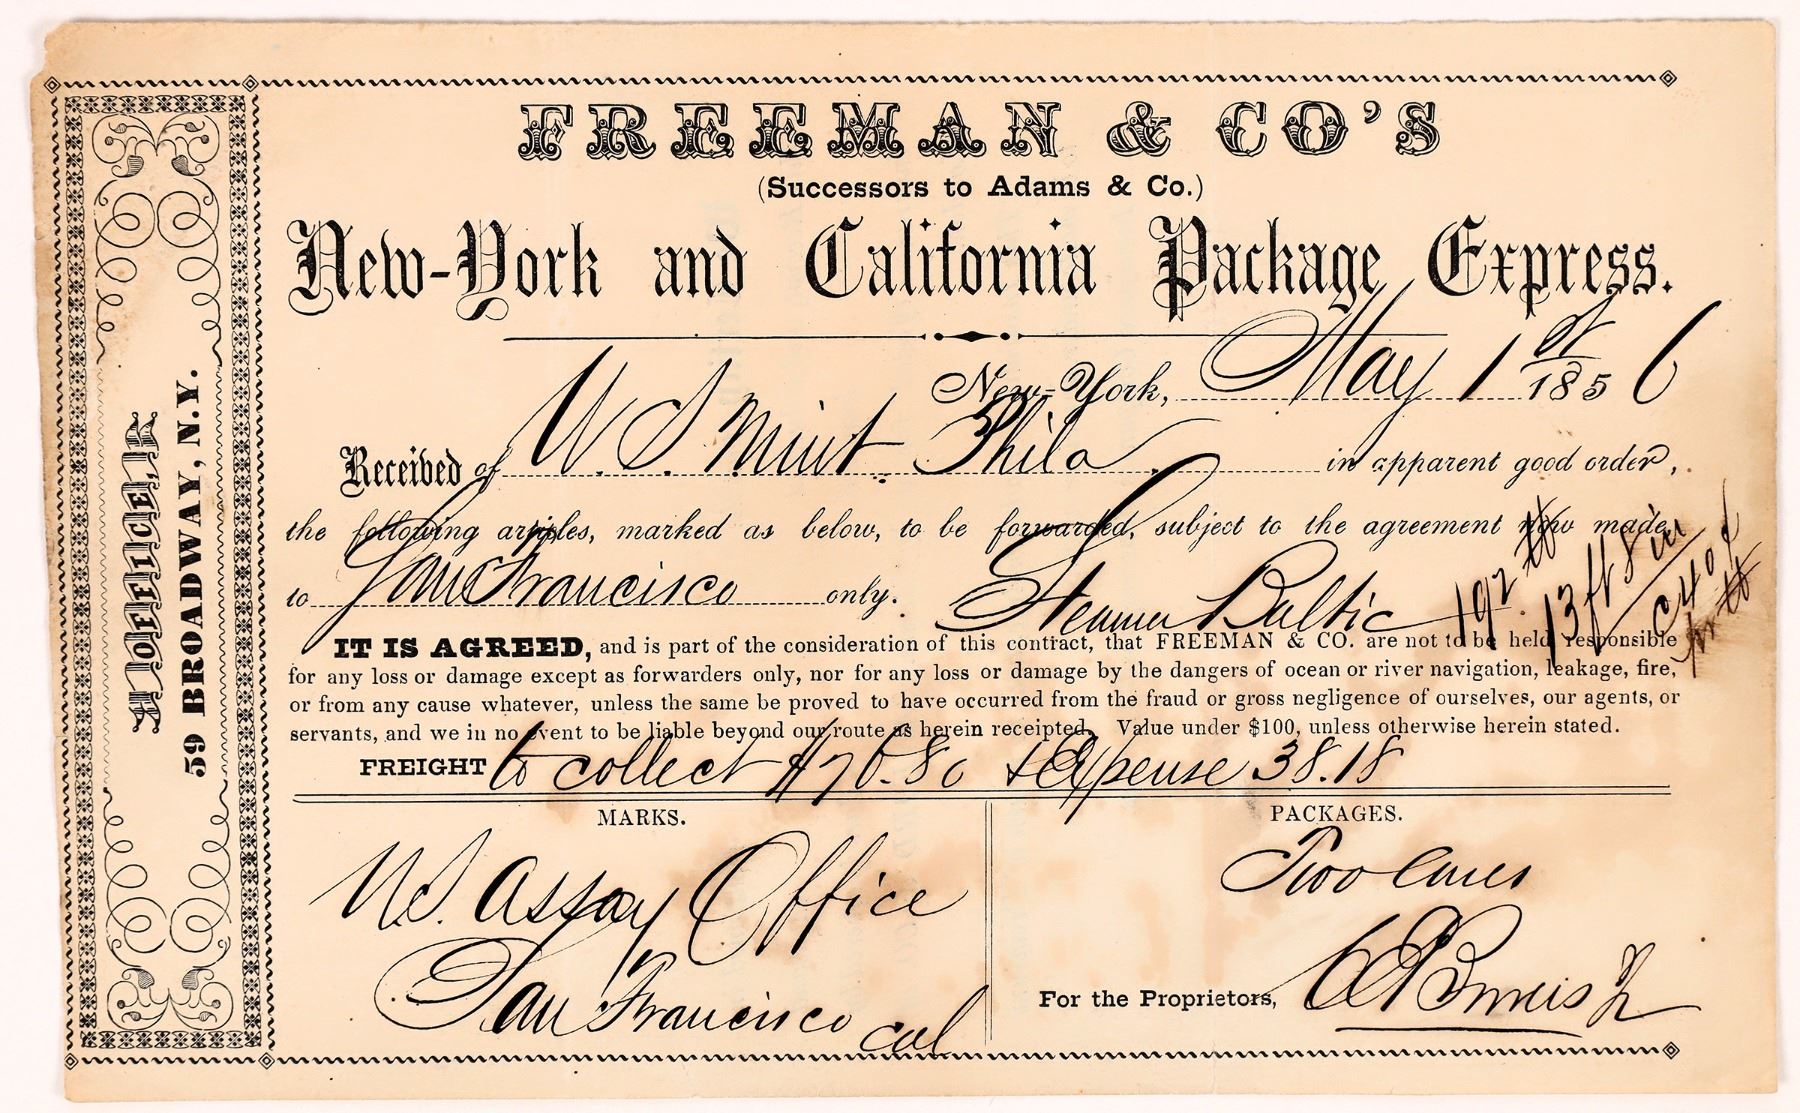 FREEMAN & CO'S
(Successors to Adams & Co.)
New-York and California Package Express.
New-York, May 1st 1856
Received of U.S. Mint Phila in apparent good order,
the following articles, marked as below, to be forwarded, subject to the agreement now made,
to San Francisco only. Steamer Baltic 192 lb
13 ft 8 in
IT IS AGREED, and is part of the consideration of this contract, that FREEMAN & CO. are not to be held responsible
for any loss or damage except as forwarders only, nor for any loss or damage by the dangers of ocean or river navigation, leakage, fire,
or from any cause whatever, unless the same be proved to have occurred from the fraud or gross negligence of ourselves, our agents, or
servants, and we in no event to be liable beyond our route as herein receipted. Value under $100, unless otherwise herein stated.
FREIGHT to collect $76.80 & Expense 38.18
MARKS.
US. Assay Office
San Francisco
Cal
PACKAGES.
Two Cases
For the Proprietors,
OFFICE,
59 BROADWAY, N.Y.